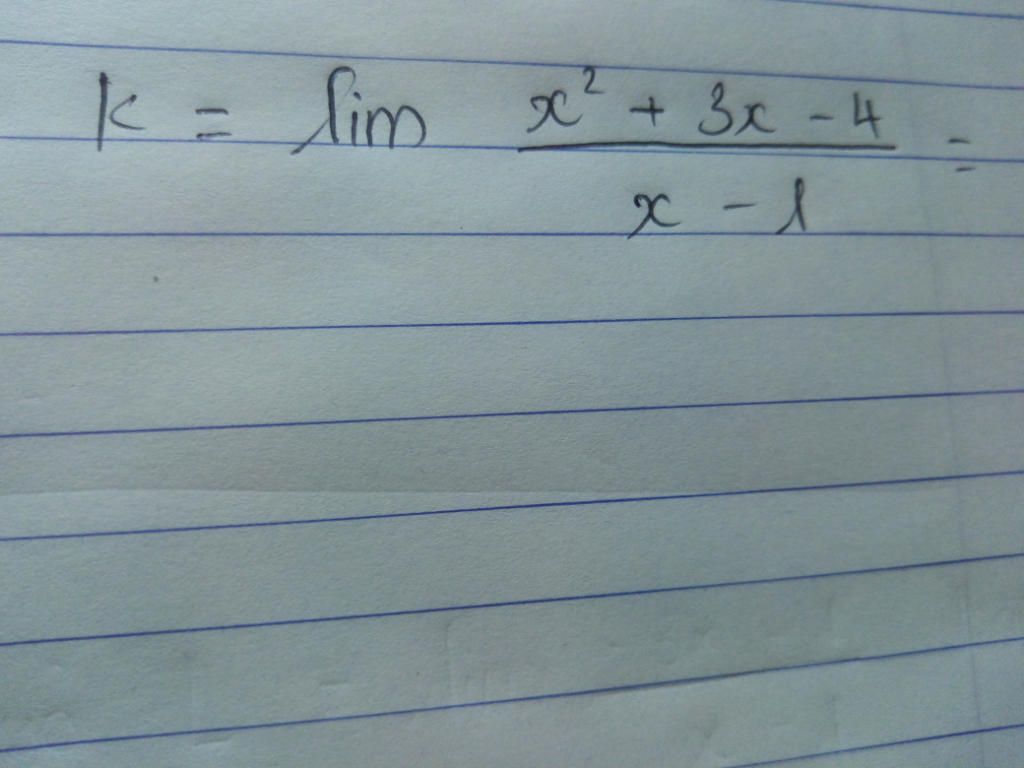 K = lim x² + 3x - 4 =
x - 1